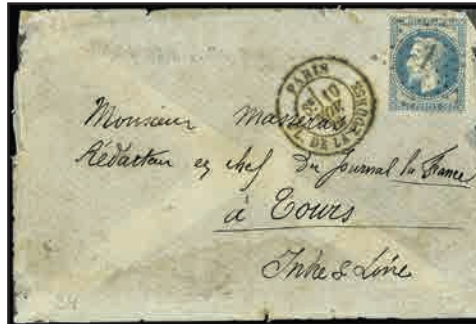 PARIS
DE LA BOURSE
Monsieur Masseras
Rédacteur en chef du Journal la France
à Tours
Indre & Loire